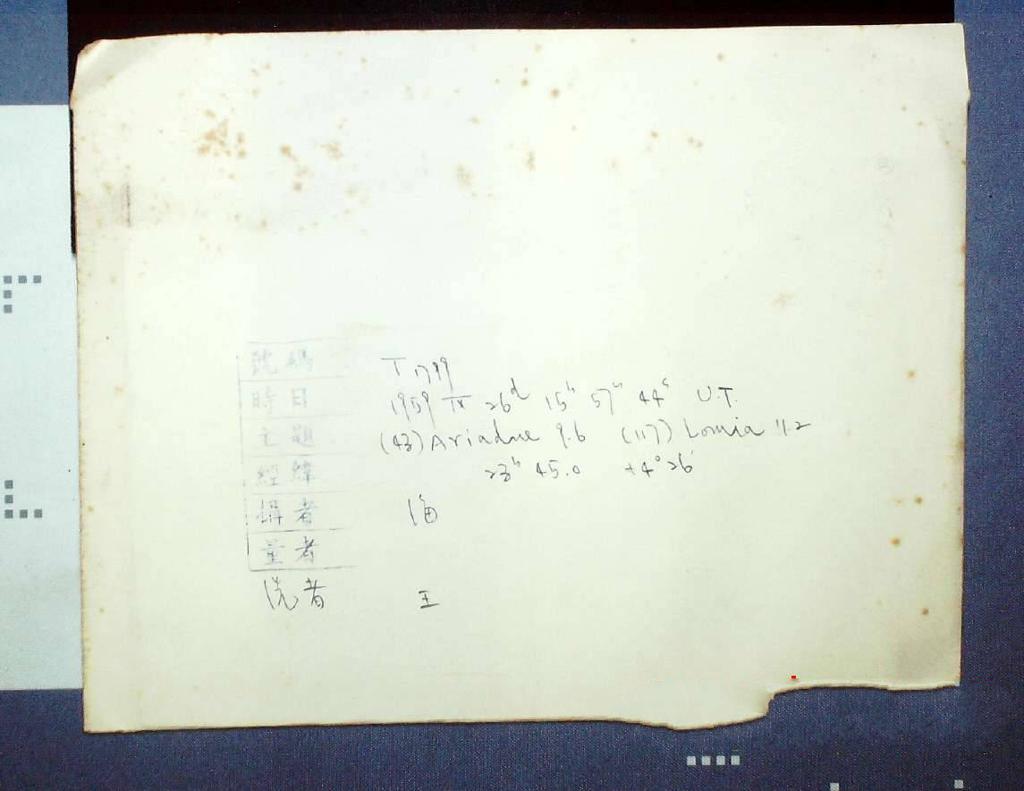 號碼 T 1799
時日 1959 IX 26ᵈ 15ʰ 57ᵐ 44ˢ U.T.
主題 (43) Ariadne 9.6 (117) Lomia 11.2
經緯 23ʰ 45.0 +4° 26'
攝者
量者
洗者 王